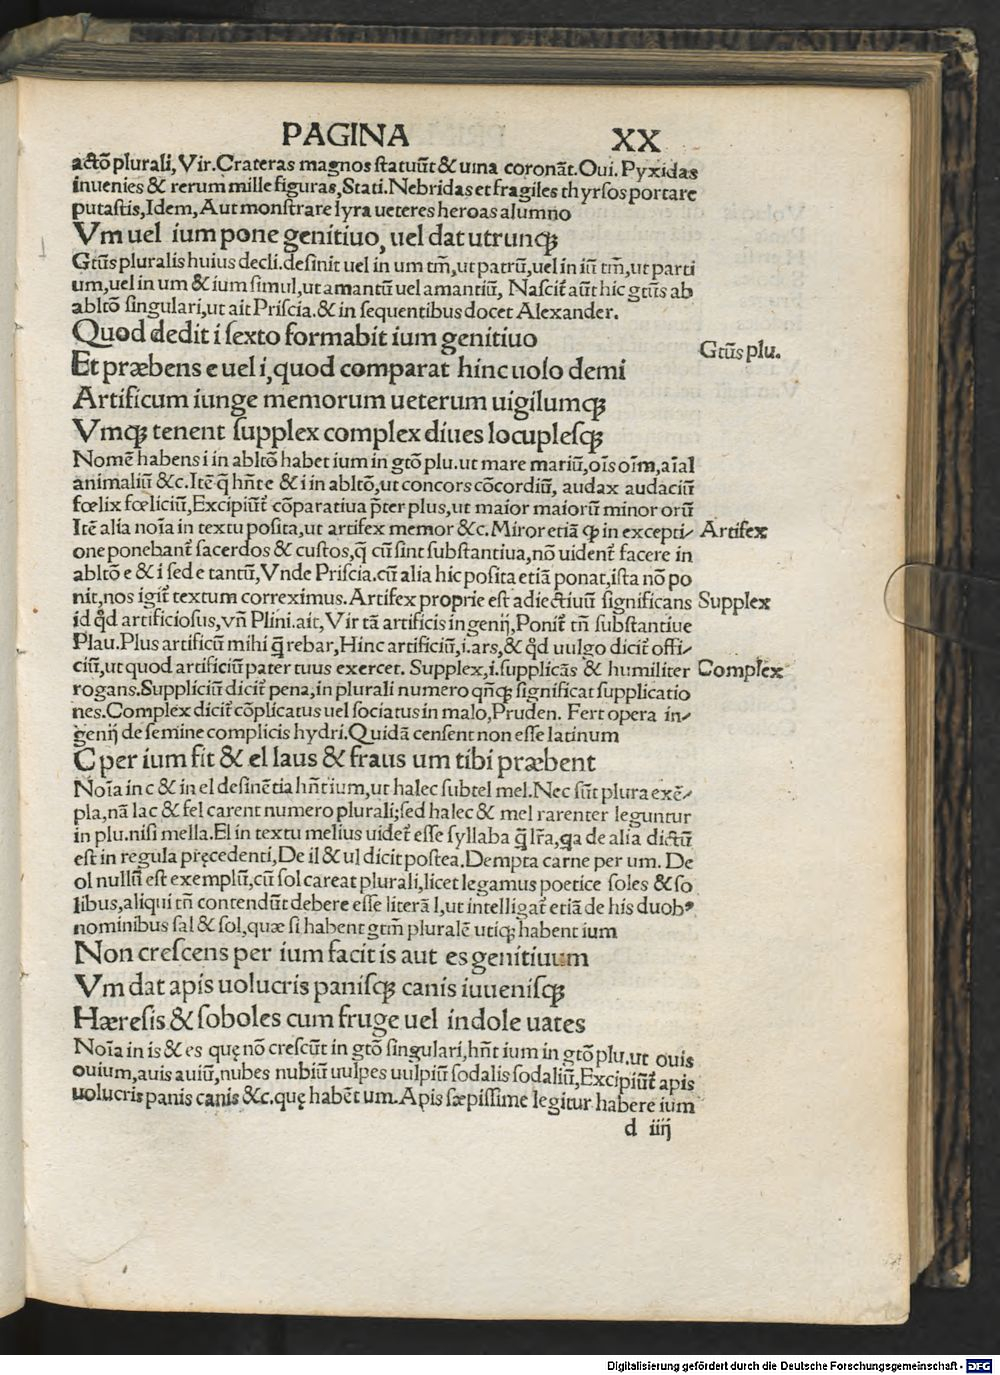 PAGINA XX
actõ plurali, Vir. Crateras magnos ſtatuũt & uina coronãt. Oui. Pyxidas
inuenies & rerum mille figuras, Stati. Nebridas et fragiles thyrſos portare
putaſtis, Idem, Aut monſtrare lyra ueteres heroas alumno
Vm uel ium pone genitiuo, uel dat utrunqꝫ
Gtũs pluralis huius decli. deſinit uel in um tm̃, ut patrũ, uel in iũ tm̃, ut parti
um, uel in um & ium ſimul, ut amantũ uel amantiũ, Naſcit᷑ aũt hic gtũs ab
abltõ ſingulari, ut ait Priſcia. & in ſequentibus docet Alexander.
Quod dedit i ſexto formabit ium genitiuo
Gtũs plu.
Et præbens e uel i, quod comparat hinc uolo demi
Artificum iunge memorum ueterum uigilumqꝫ
Vmqꝫ tenent ſupplex complex diues locupleſqꝫ
Nomẽ habens i in abltõ habet ium in gtõ plu. ut mare mariũ, oĩs oĩm, aĩal
animaliũ &c. Itẽ q̃ hñt e & i in abltõ, ut concors cõcordiũ, audax audaciũ
fœlix fœliciũ, Excipiũt᷑ cõparatiua p̃ter plus, ut maior maiorũ minor orũ
Itẽ alia noĩa in textu poſita, ut artifex memor &c. Miror etiã ꝙ in excepti⸗
Artifex
one ponebant᷑ ſacerdos & cuſtos, q̃ cũ ſint ſubſtantiua, nõ uident᷑ facere in
abltõ e & i ſed e tantũ, Vnde Priſcia. cũ alia hic poſita etiã ponat, iſta nõ po
nit, nos igit᷑ textum correximus. Artifex proprie eſt adiectiuũ ſignificans
Supplex
id qd̾ artificioſus, vñ Plini. ait, Vir tã artificis ingenij, Ponit᷑ tñ ſubſtantiue
Plau. Plus artificũ mihi q̃ rebar, Hinc artificiũ, i. ars, & qd̾ uulgo dicit᷑ offi⸗
ciũ, ut quod artificiũ pater tuus exercet. Supplex, i. ſupplicãs & humiliter
Complex
rogans. Suppliciũ dicit᷑ pena, in plurali numero qñqꝫ ſignificat ſupplicatio
nes. Complex dicit᷑ cõplicatus uel ſociatus in malo, Pruden. Fert opera in⸗
genij de ſemine complicis hydri. Quidã cenſent non eſſe latinum
C per ium fit & el laus & fraus um tibi præbent
Noĩa in c & in el deſinẽtia hñt ium, ut halec ſubtel mel. Nec ſũt plura exẽ⸗
pla, nã lac & fel carent numero plurali; ſed halec & mel rarenter leguntur
in plu. niſi mella. El in textu melius uidet᷑ eſſe ſyllaba q̃ lr̃a, qa de alia dictũ
eſt in regula pręcedenti, De il & ul dicit poſtea. Dempta carne per um. De
ol nullũ eſt exemplũ, cũ ſol careat plurali, licet legamus poetice ſoles & ſo
libus, aliqui tñ contendũt debere eſſe literã l, ut intelligat᷑ etiã de his duobꝰ
nominibus ſal & ſol, quæ ſi habent gtm̃ pluralẽ utiqꝫ habent ium
Non creſcens per ium facit is aut es genitiuum
Vm dat apis uolucris paniſqꝫ canis iuueniſqꝫ
Hæreſis & ſoboles cum fruge uel indole uates
Noĩa in is & es quę nõ creſcũt in gtõ ſingulari, hñt ium in gtõ plu. ut ouis
ouium, auis auiũ, nubes nubiũ uulpes uulpiũ ſodalis ſodaliũ, Excipiũt᷑ apis
uolucris panis canis &c. quę habẽt um. Apis ſæpiſſime legitur habere ium
d iiij
Digitalisierung gefördert durch die Deutsche Forschungsgemeinschaft - DFG